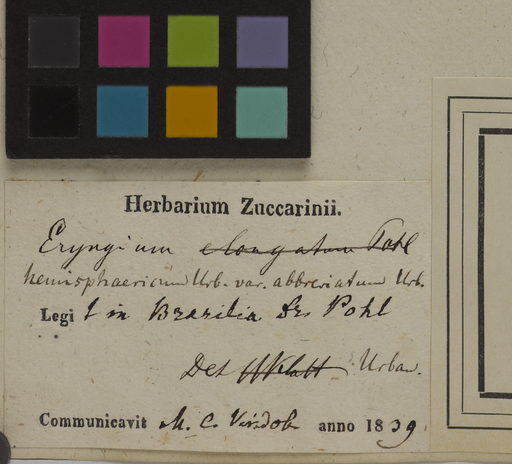 Herbarium Zuccarinii.
Eryngium elongatum Pohl
hemisphaericum Urb. var. abbreviatum Urb.
Legi t in Brasilia Dr Pohl
Det Klatt Urban.
Communicavit M. C. Vindob. anno 1839